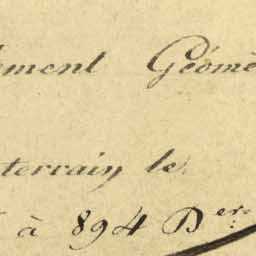 ement Géomè
terrain le
à 894 Der.